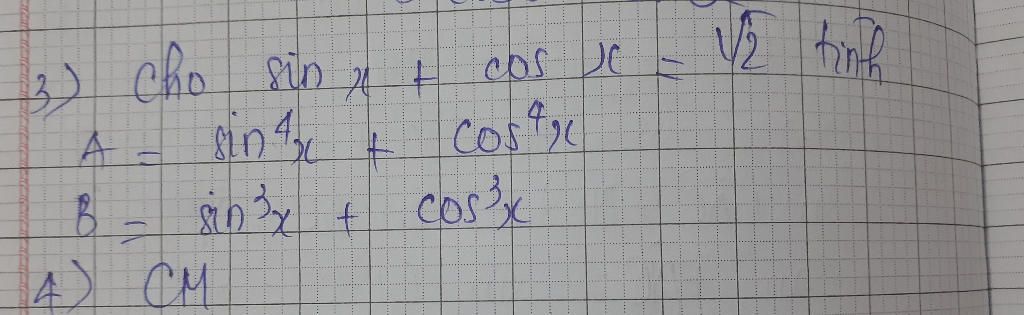 3) Cho sin x + cos x = √2 tính
A = sin⁴x + cos⁴x
B = sin³x + cos³x
4) CM